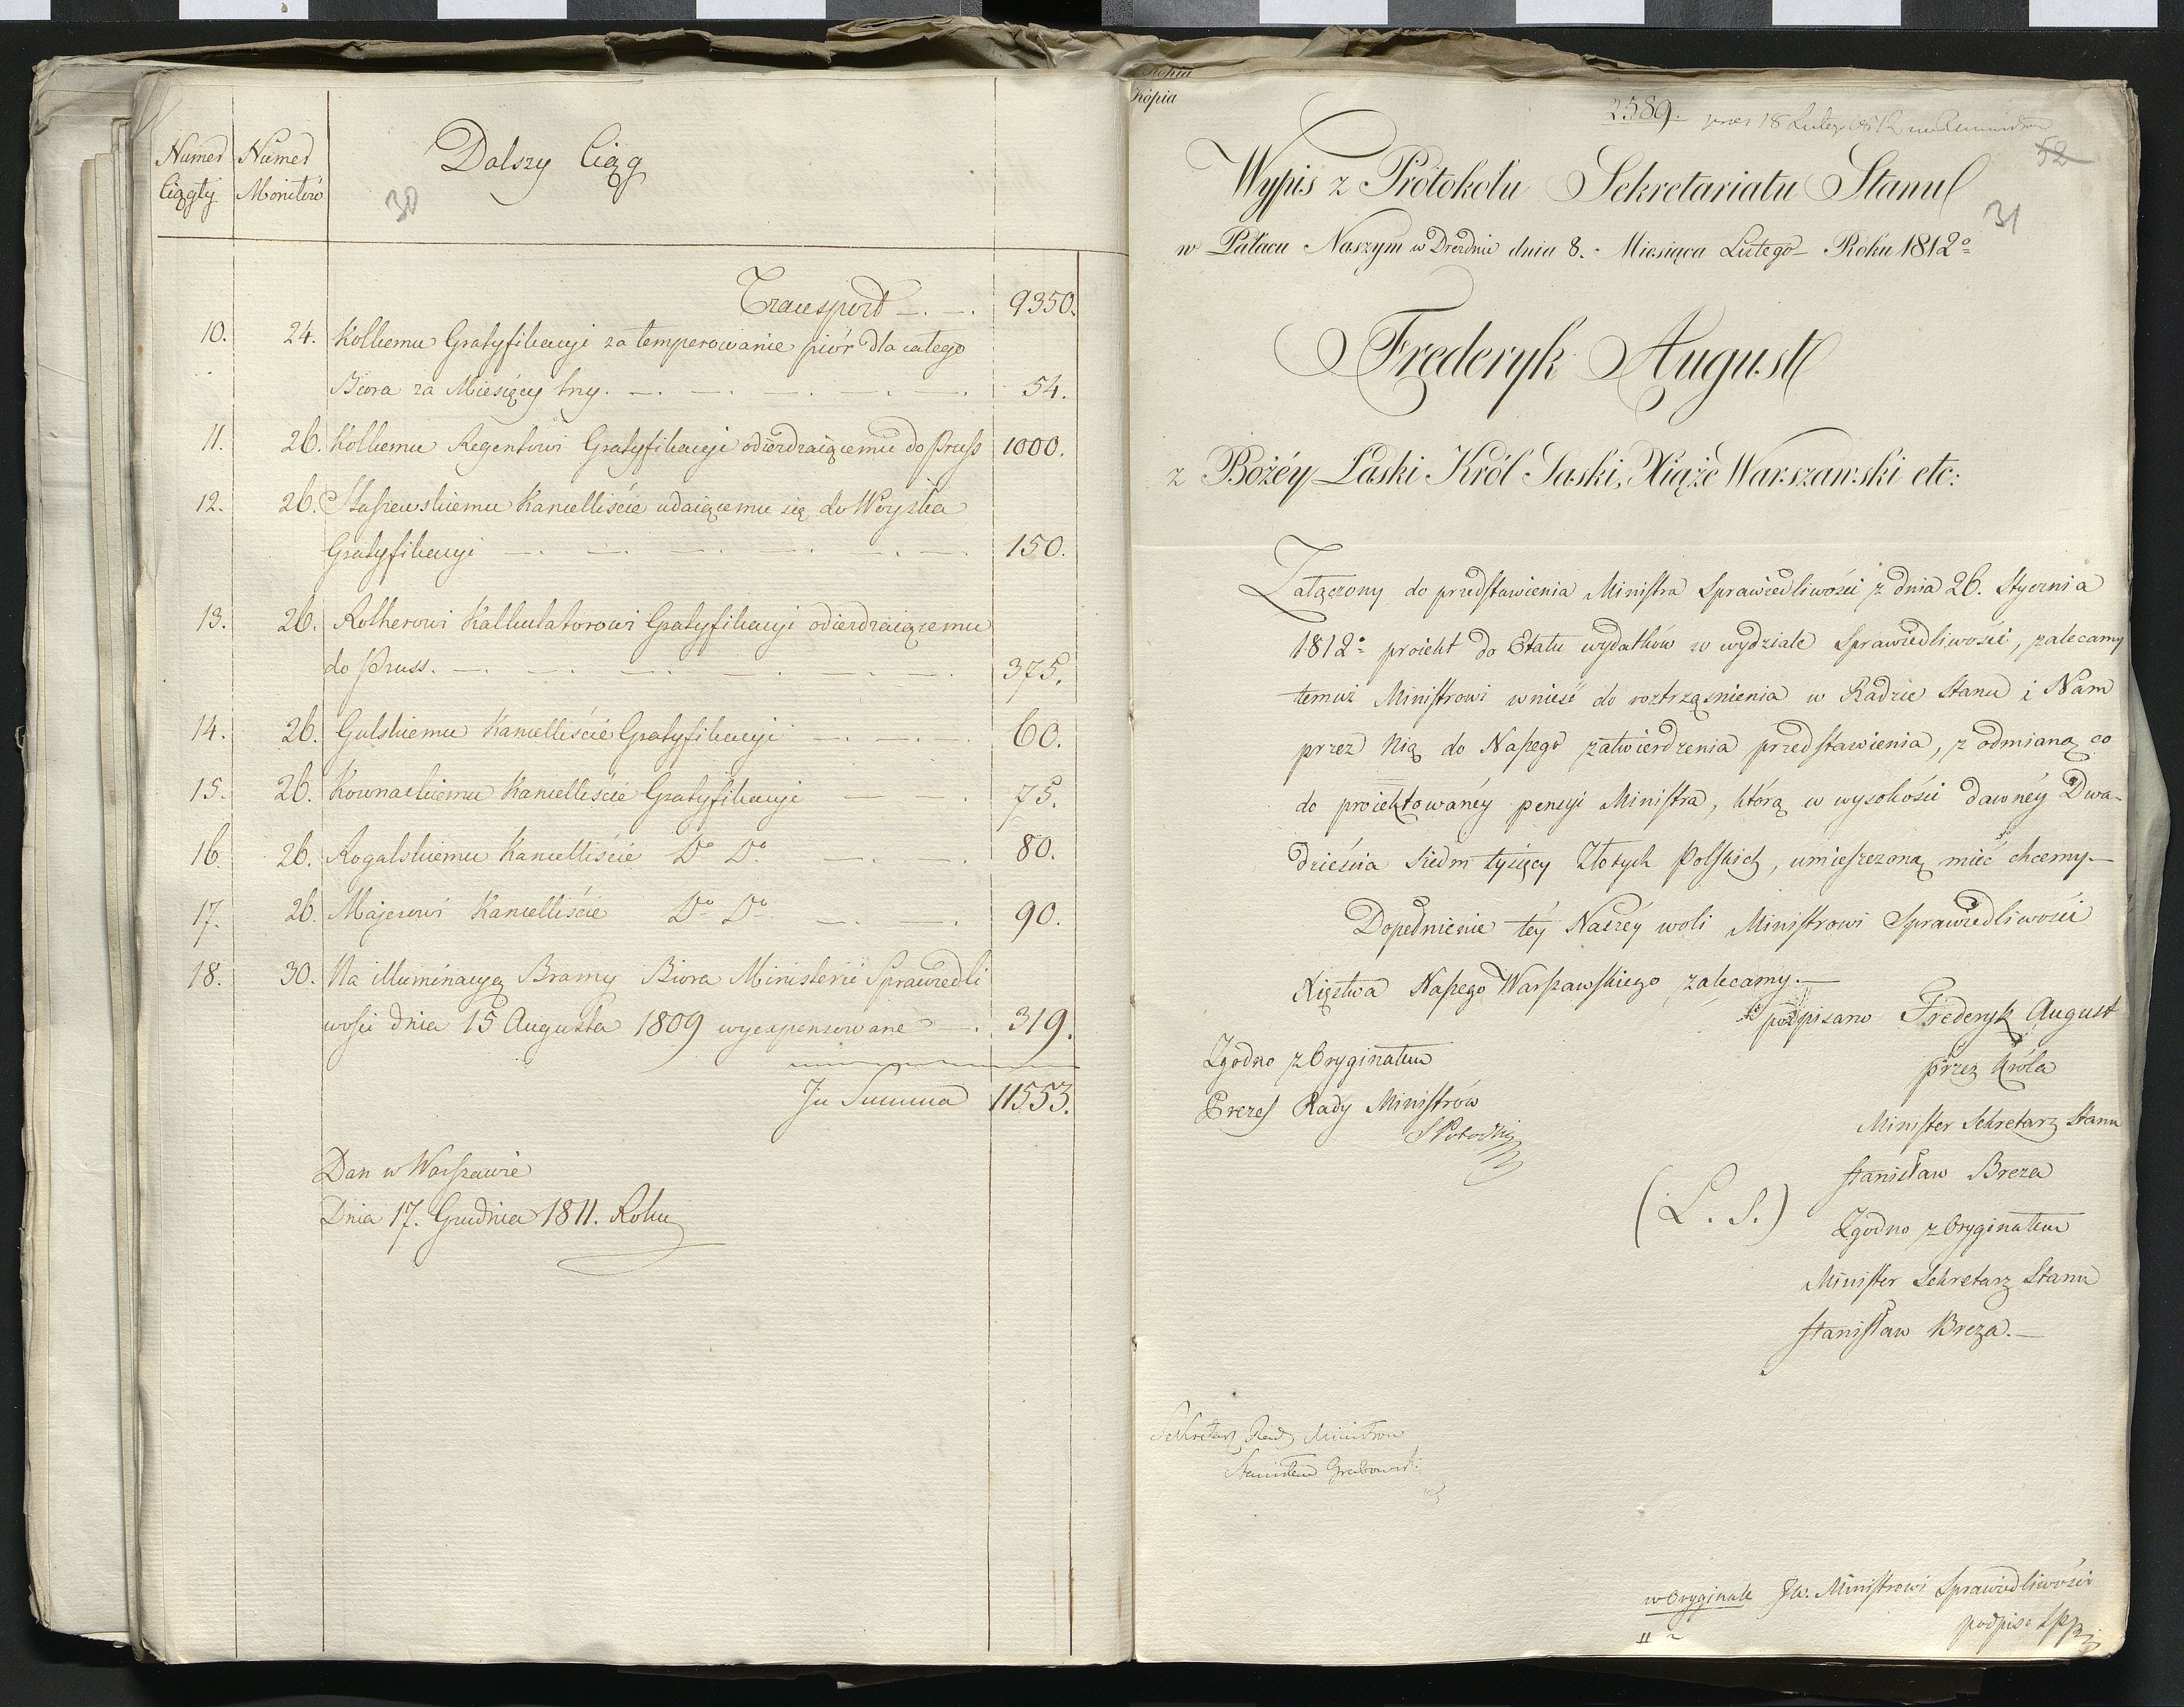 Numer Numer
Ciągły Monitów
Dalszy Ciąg
30
Transport 9350.
10. 24. Kolbemu Gratyfikacyi za temperowanie piór dla całego
Biora za Miesięcy trzy. 54.
11. 26. Kolbemu Regentowi Gratyfikacyi odieżdzaiącemu do Pruss 1000.
12. 26. Staszewskiemu Kancelliście udaiącemu się do Woyska
Gratyfikacyi 150.
13. 26. Rotherowi Kalkulatorowi Gratyfikacyi odieżdzaiącemu
do Pruss. 375.
14. 26. Gulskiemu Kancelliście Gratyfikacyi 60.
15. 26. Kownackiemu Kancelliście Gratyfikacyi 75.
16. 26. Rogalskiemu Kancelliście Do Do 80.
17. 26. Majerowi Kancelliście Do Do 90.
18. 30. Na illuminacyą Bramy Biora Ministerii Sprawiedli
wości dnia 15 Augusta 1809 wyexpensowane 319.
In Summa 11553.
Dan w Warszawie
Dnia 17. Grudnia 1811. Roku
Kopia
Kopia
2589. 18 Lutego 1812
52
31
Wypis z Protokołu Sekretariatu Stanu
w Pałacu Naszym w Dreźdnie dnia 8. Miesiąca Lutego Roku 1812o
Frederyk August
z Bożéy Łaski Król Saski, Xiąże Warszawski etc:
Załączony do przedstawienia Ministra Sprawiedliwości z dnia 26. Stycznia
1812o proiekt do Etatu wydatków w wydziale Sprawiedliwości, zalecamy
temuż Ministrowi wnieść do roztrząśnienia w Radzie Stanu i Nam
przez Nią do Naszego zatwierdzenia przedstawienia, z odmianą co
do proiektowanéy pensyi Ministra, którą w wysokości dawnéy Dwa-
dzieścia siedm tysięcy Złotych Polskich, umieszczoną mieć chcemy.—
Dopełnienie téy Naszéy woli Ministrowi Sprawiedliwości
Xięstwa Naszego Warszawskiego zalecamy.—
podpisano Frederyk August
przez Króla
Minister Sekretarz Stanu
Stanisław Breza
Zgodno z Oryginałem
Prezes Rady Ministrów
S Potocki
(L. S.)
Zgodno z Oryginałem
Minister Sekretarz Stanu
Stanisław Breza.—
Sekretarz Rady Ministrów
Stanisław Grabowski
w Oryginale JW. Ministrowi Sprawiedliwości
podpis: